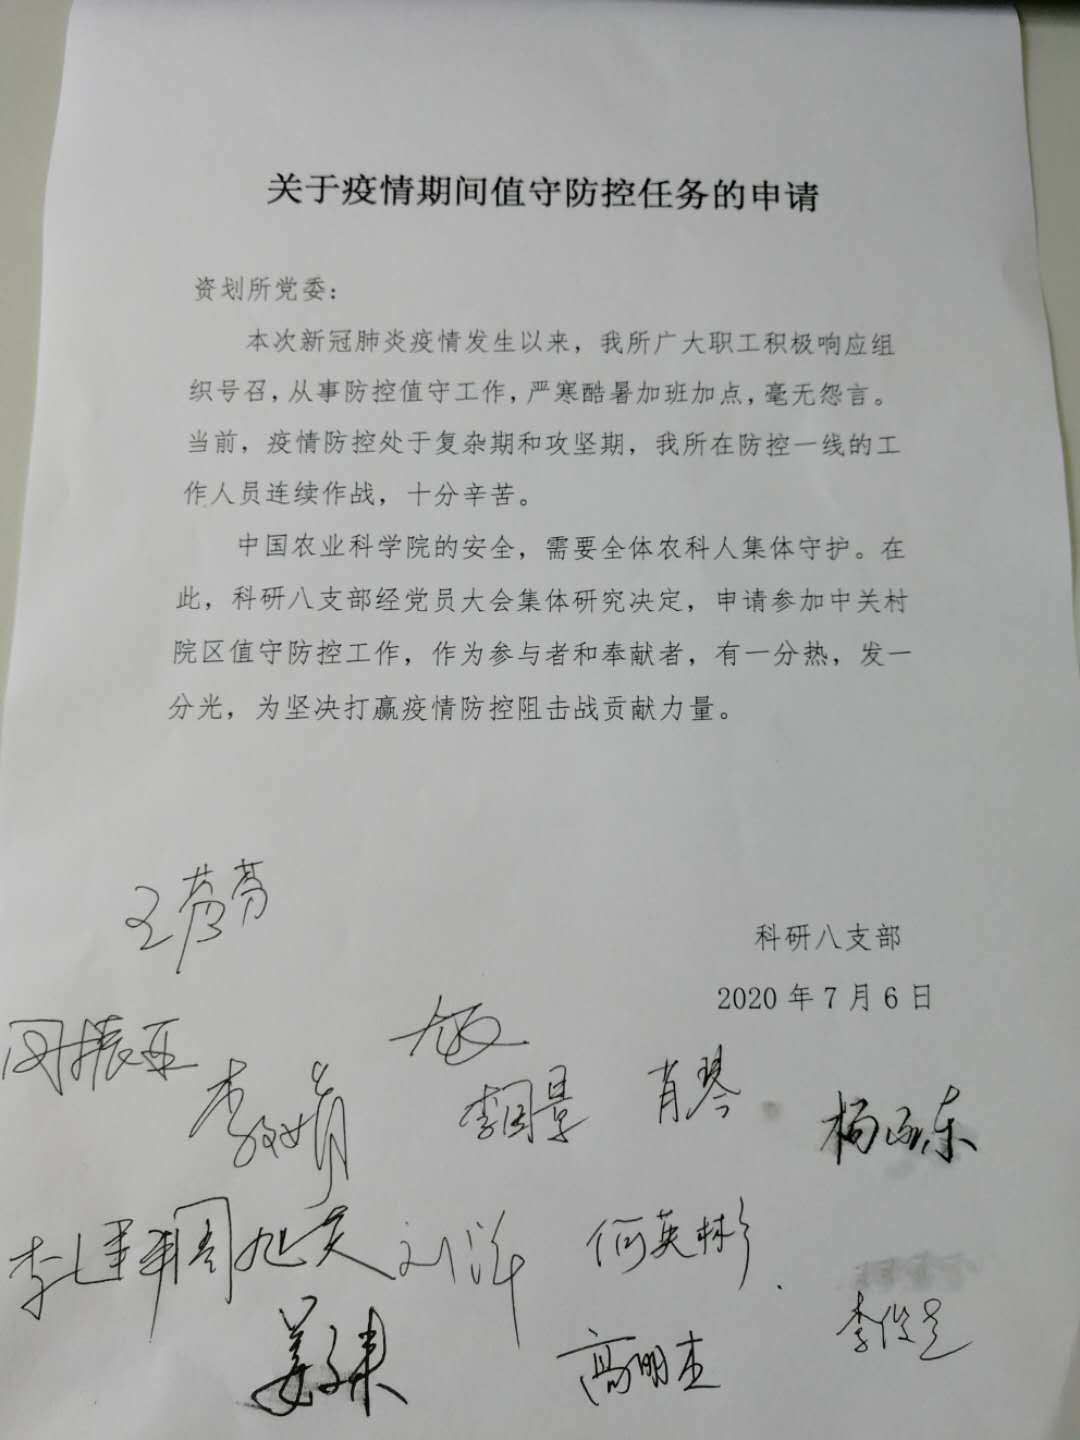 关于疫情期间值守防控任务的申请
资划所党委：
本次新冠肺炎疫情发生以来，我所广大职工积极响应组
织号召，从事防控值守工作，严寒酷暑加班加点，毫无怨言。
当前，疫情防控处于复杂期和攻坚期，我所在防控一线的工
作人员连续作战，十分辛苦。
中国农业科学院的安全，需要全体农科人集体守护。在
此，科研八支部经党员大会集体研究决定，申请参加中关村
院区值守防控工作，作为参与者和奉献者，有一分热，发一
分光，为坚决打赢疫情防控阻击战贡献力量。
科研八支部
2020 年 7 月 6 日
周振亚
李娟
肖琴
李建军 周旭英 刘洋 何英彬
高明杰